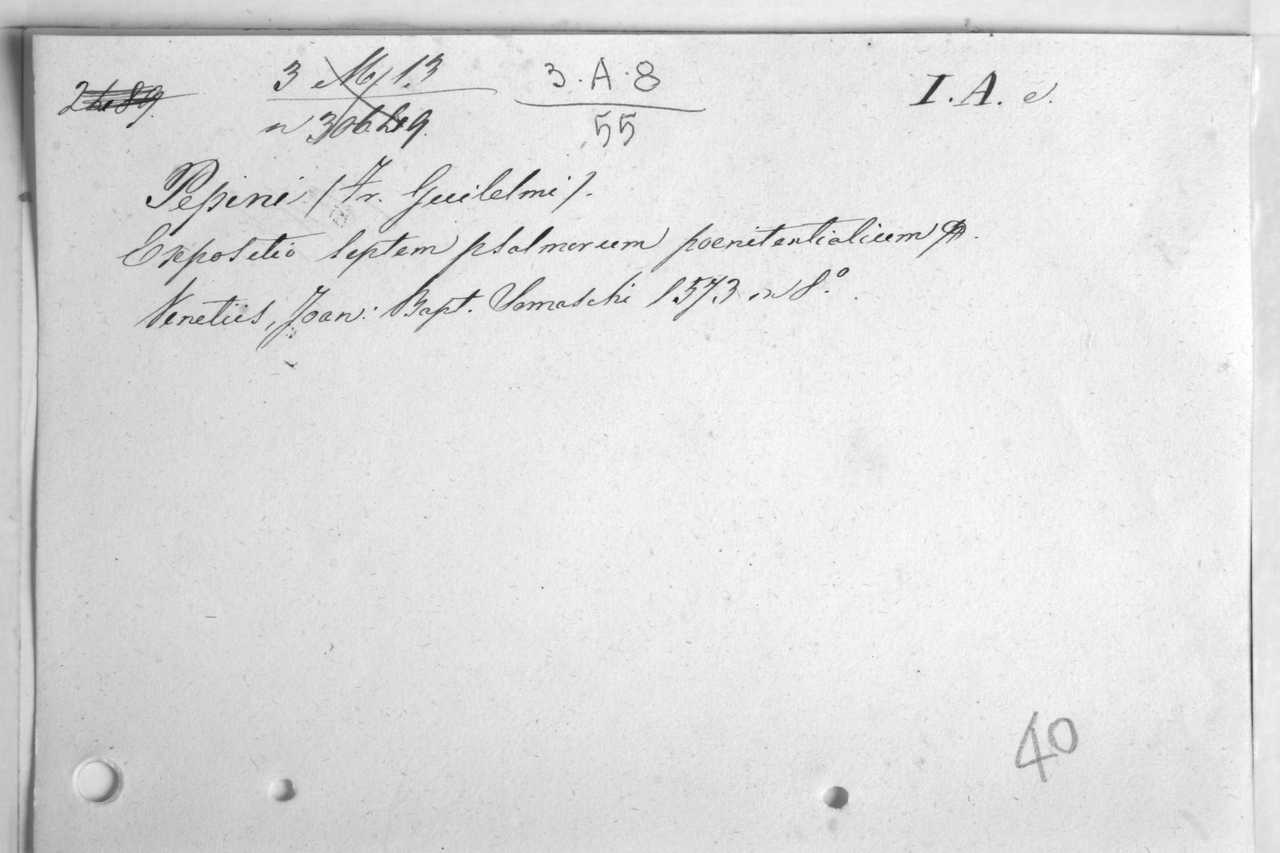 3 My 13 3.A.8 I.A. e.
n 55
Pepini (Fr. Guilelmi).
Expositio septem psalmorum poenitentialium
Venetiis, Joan: Bapt. Somaschi 1573 in 8.º
40